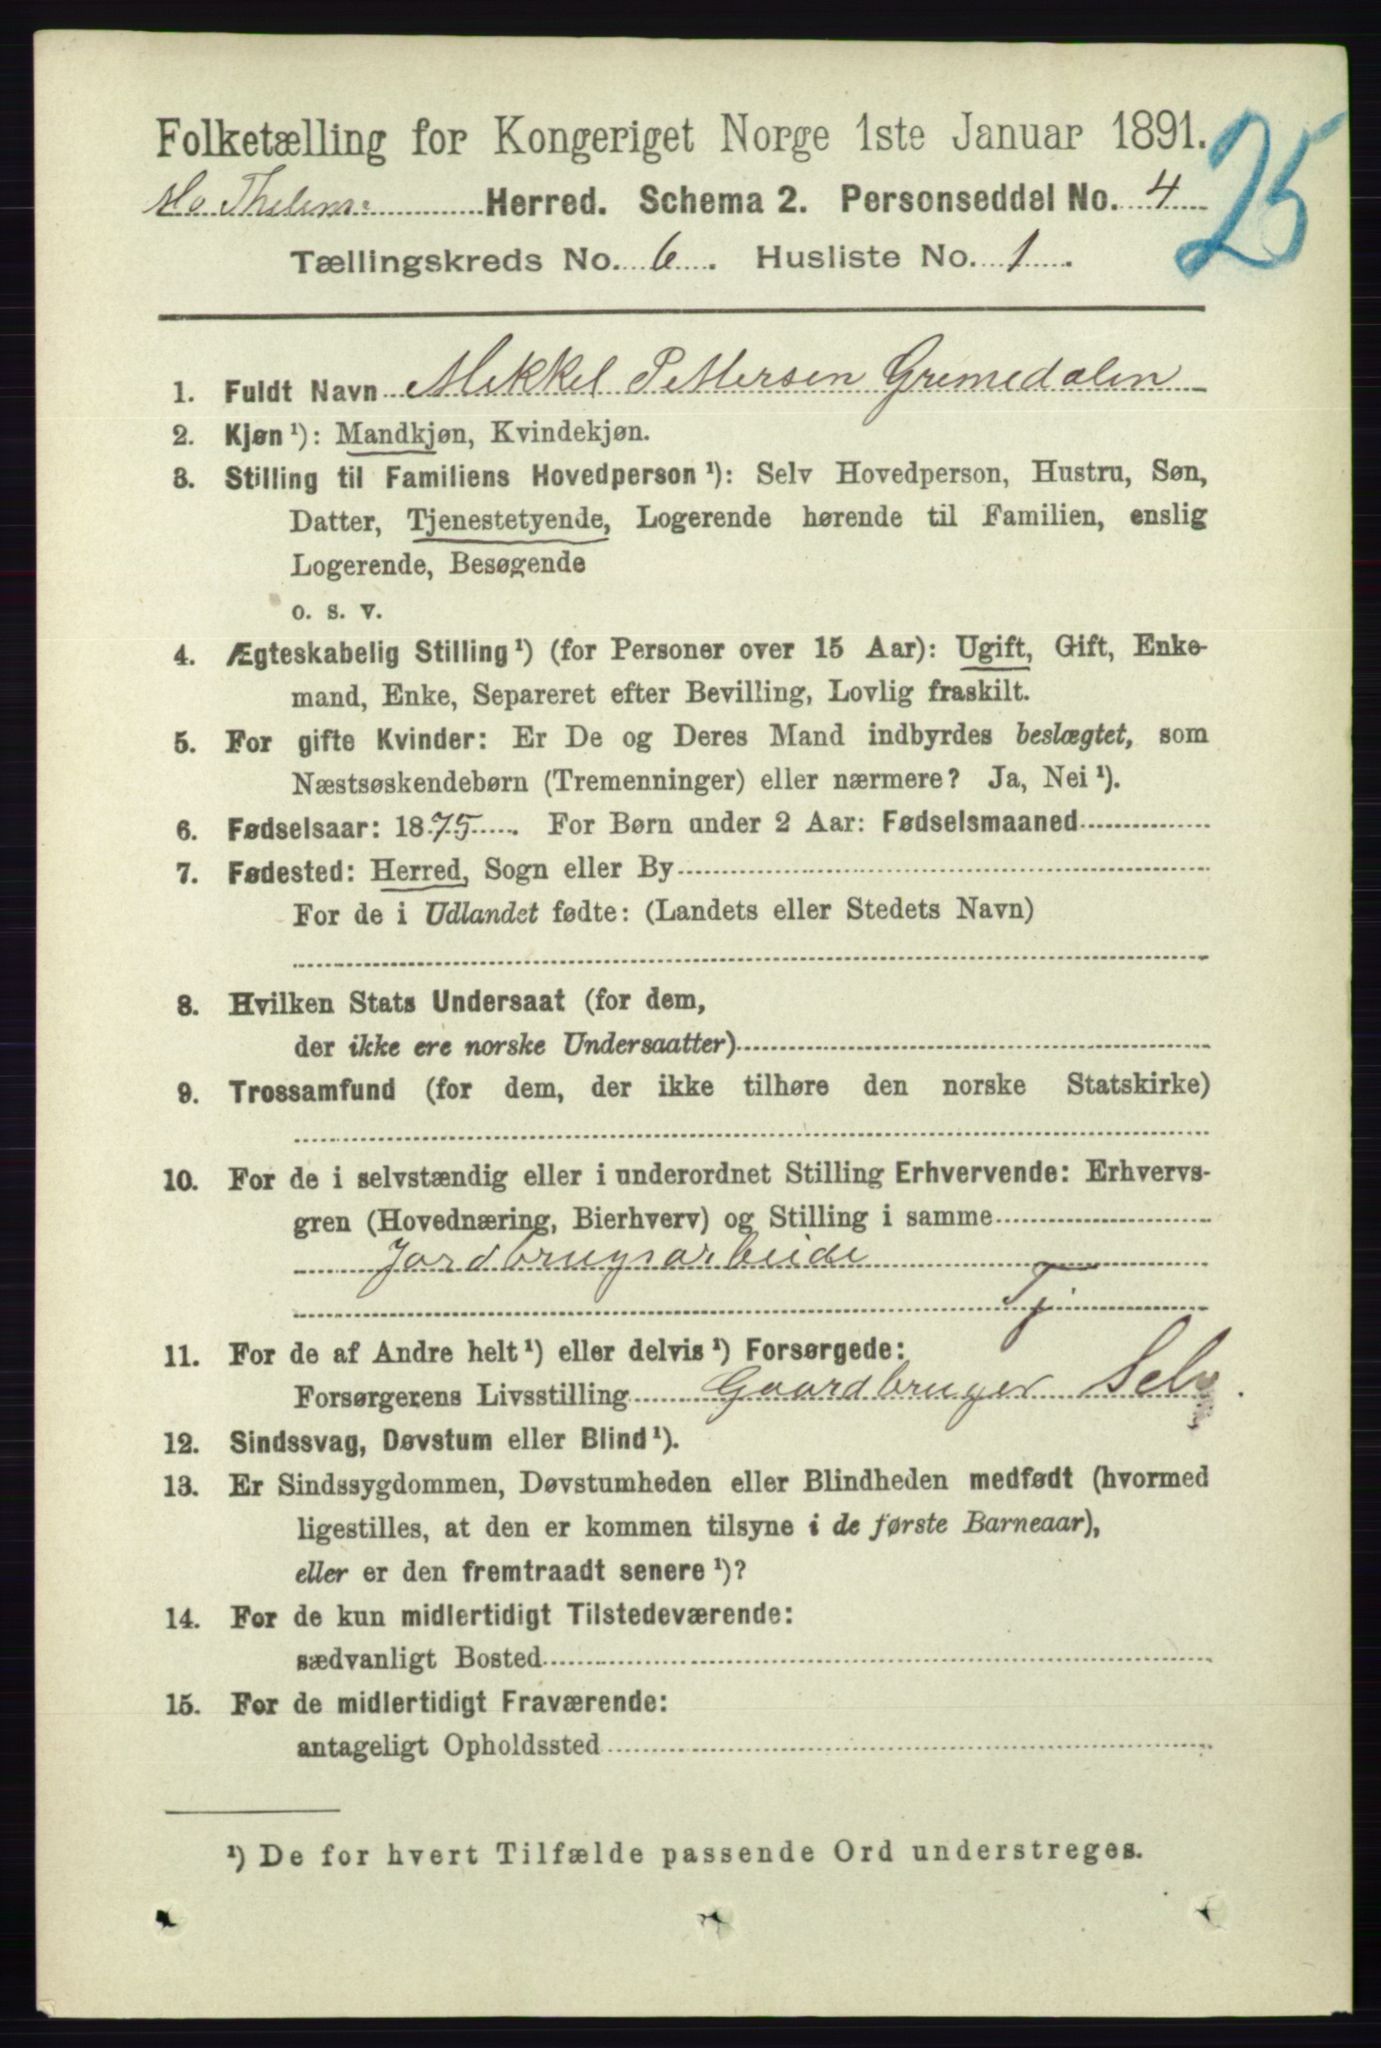 Folketælling for Kongeriget Norge 1ste Januar 1891.
25
Mo Thelem. Herred. Schema 2. Personseddel No. 4
Tællingskreds No. 6. Husliste No. 1.
1. Fuldt Navn Mikkel Pettersen Grimedalen
2. Kjøn ¹): Mandkjøn, Kvindekjøn.
3. Stilling til Familiens Hovedperson ¹): Selv Hovedperson, Hustru, Søn,
Datter, Tjenestetyende, Logerende hørende til Familien, enslig
Logerende, Besøgende
o. s. v.
4. Ægteskabelig Stilling ¹) (for Personer over 15 Aar): Ugift, Gift, Enke-
mand, Enke, Separeret efter Bevilling, Lovlig fraskilt.
5. For gifte Kvinder: Er De og Deres Mand indbyrdes beslægtet, som
Næstsøskendebørn (Tremenninger) eller nærmere? Ja, Nei ¹).
6. Fødselsaar: 1875. For Børn under 2 Aar: Fødselsmaaned
7. Fødested: Herred, Sogn eller By
For de i Udlandet fødte: (Landets eller Stedets Navn)
8. Hvilken Stats Undersaat (for dem,
der ikke ere norske Undersaatter)
9. Trossamfund (for dem, der ikke tilhøre den norske Statskirke)
10. For de i selvstændig eller i underordnet Stilling Erhvervende: Erhvervs-
gren (Hovednæring, Bierhverv) og Stilling i samme
Jordbrugsarbeide
Tj
11. For de af Andre helt ¹) eller delvis ¹) Forsørgede:
Forsørgerens Livsstilling Gaardbruger Selv.
12. Sindssvag, Døvstum eller Blind ¹).
13. Er Sindssygdommen, Døvstumheden eller Blindheden medfødt (hvormed
ligestilles, at den er kommen tilsyne i de første Barneaar),
eller er den fremtraadt senere ¹)?
14. For de kun midlertidigt Tilstedeværende:
sædvanligt Bosted
15. For de midlertidigt Fraværende:
antageligt Opholdssted
¹) De for hvert Tilfælde passende Ord understreges.